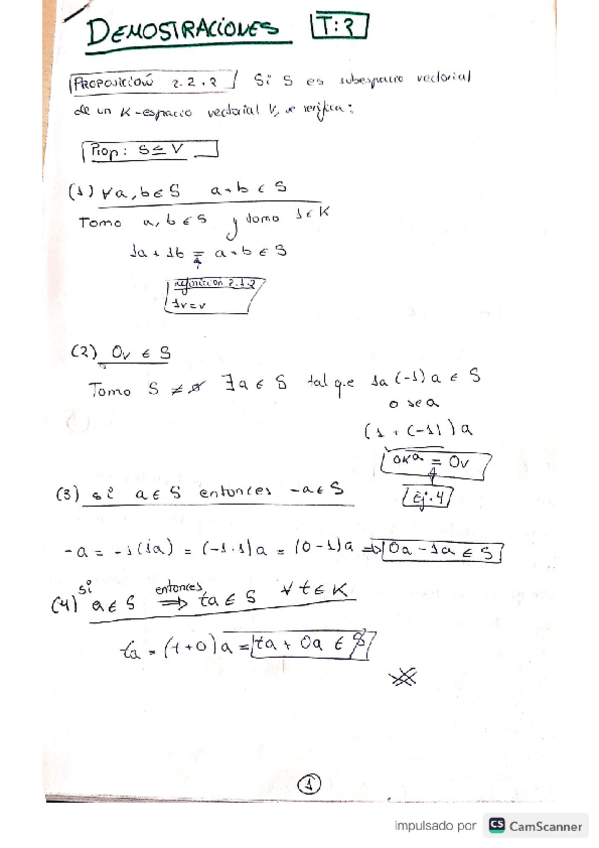 DEMOSTRACIONES T:2
PROPOSICIÓN 2.2.2 Si S es subespacio vectorial
de un K-espacio vectorial V, se verifica:
Prop: S ≤ V
(1) ∀a, b ∈ S a+b ∈ S
Tomo a, b ∈ S y tomo 1 ∈ K
1a + 1b = a+b ∈ S
definición 2.1.2
1v = v
(2) 0v ∈ S
Tomo S ≠ ∅ ∃a ∈ S tal que 1a (-1) a ∈ S
o sea
(1 + (-1)) a
0Kª = 0v
Ej. 4
(3) si a ∈ S entonces -a ∈ S
-a = -1(1a) = (-1·1)a = (0-1)a ⇒ 0a - 1a ∈ S
(4) si a ∈ S entonces ⇒ ta ∈ S ∀t ∈ K
ta = (t+0)a = ta + 0a ∈ S
1
impulsado por CS CamScanner